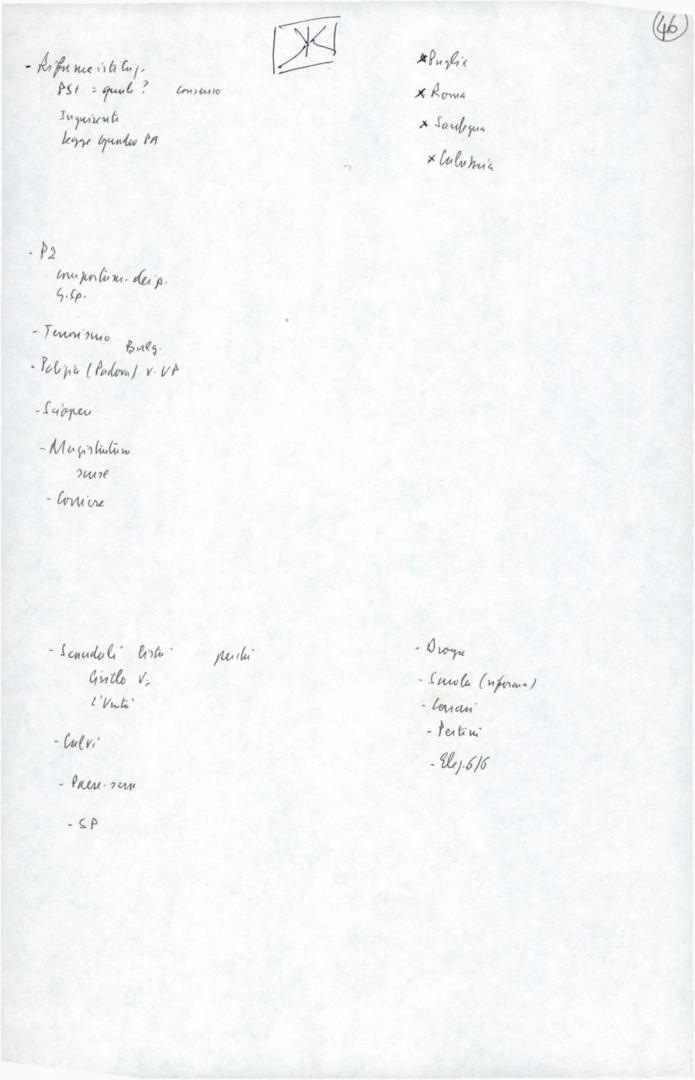 46
- Riforme istituz.
PSI = quale? consenso
Inquirenti
legge quadro PA
x Puglia
x Roma
x Sardegna
x Calabria
- P2
comportam. dei p.
G.Sp.
- Terrorismo
Bulg.
- Polizia (Padova) v. UP
- Scioperi
- Magistratura
- Corriere
- Scandali
L'Unità
- Calvi
- Paese-sera
- SP
- Droga
- Scuola (riforma)
- Pertini
- Elez. 6/6